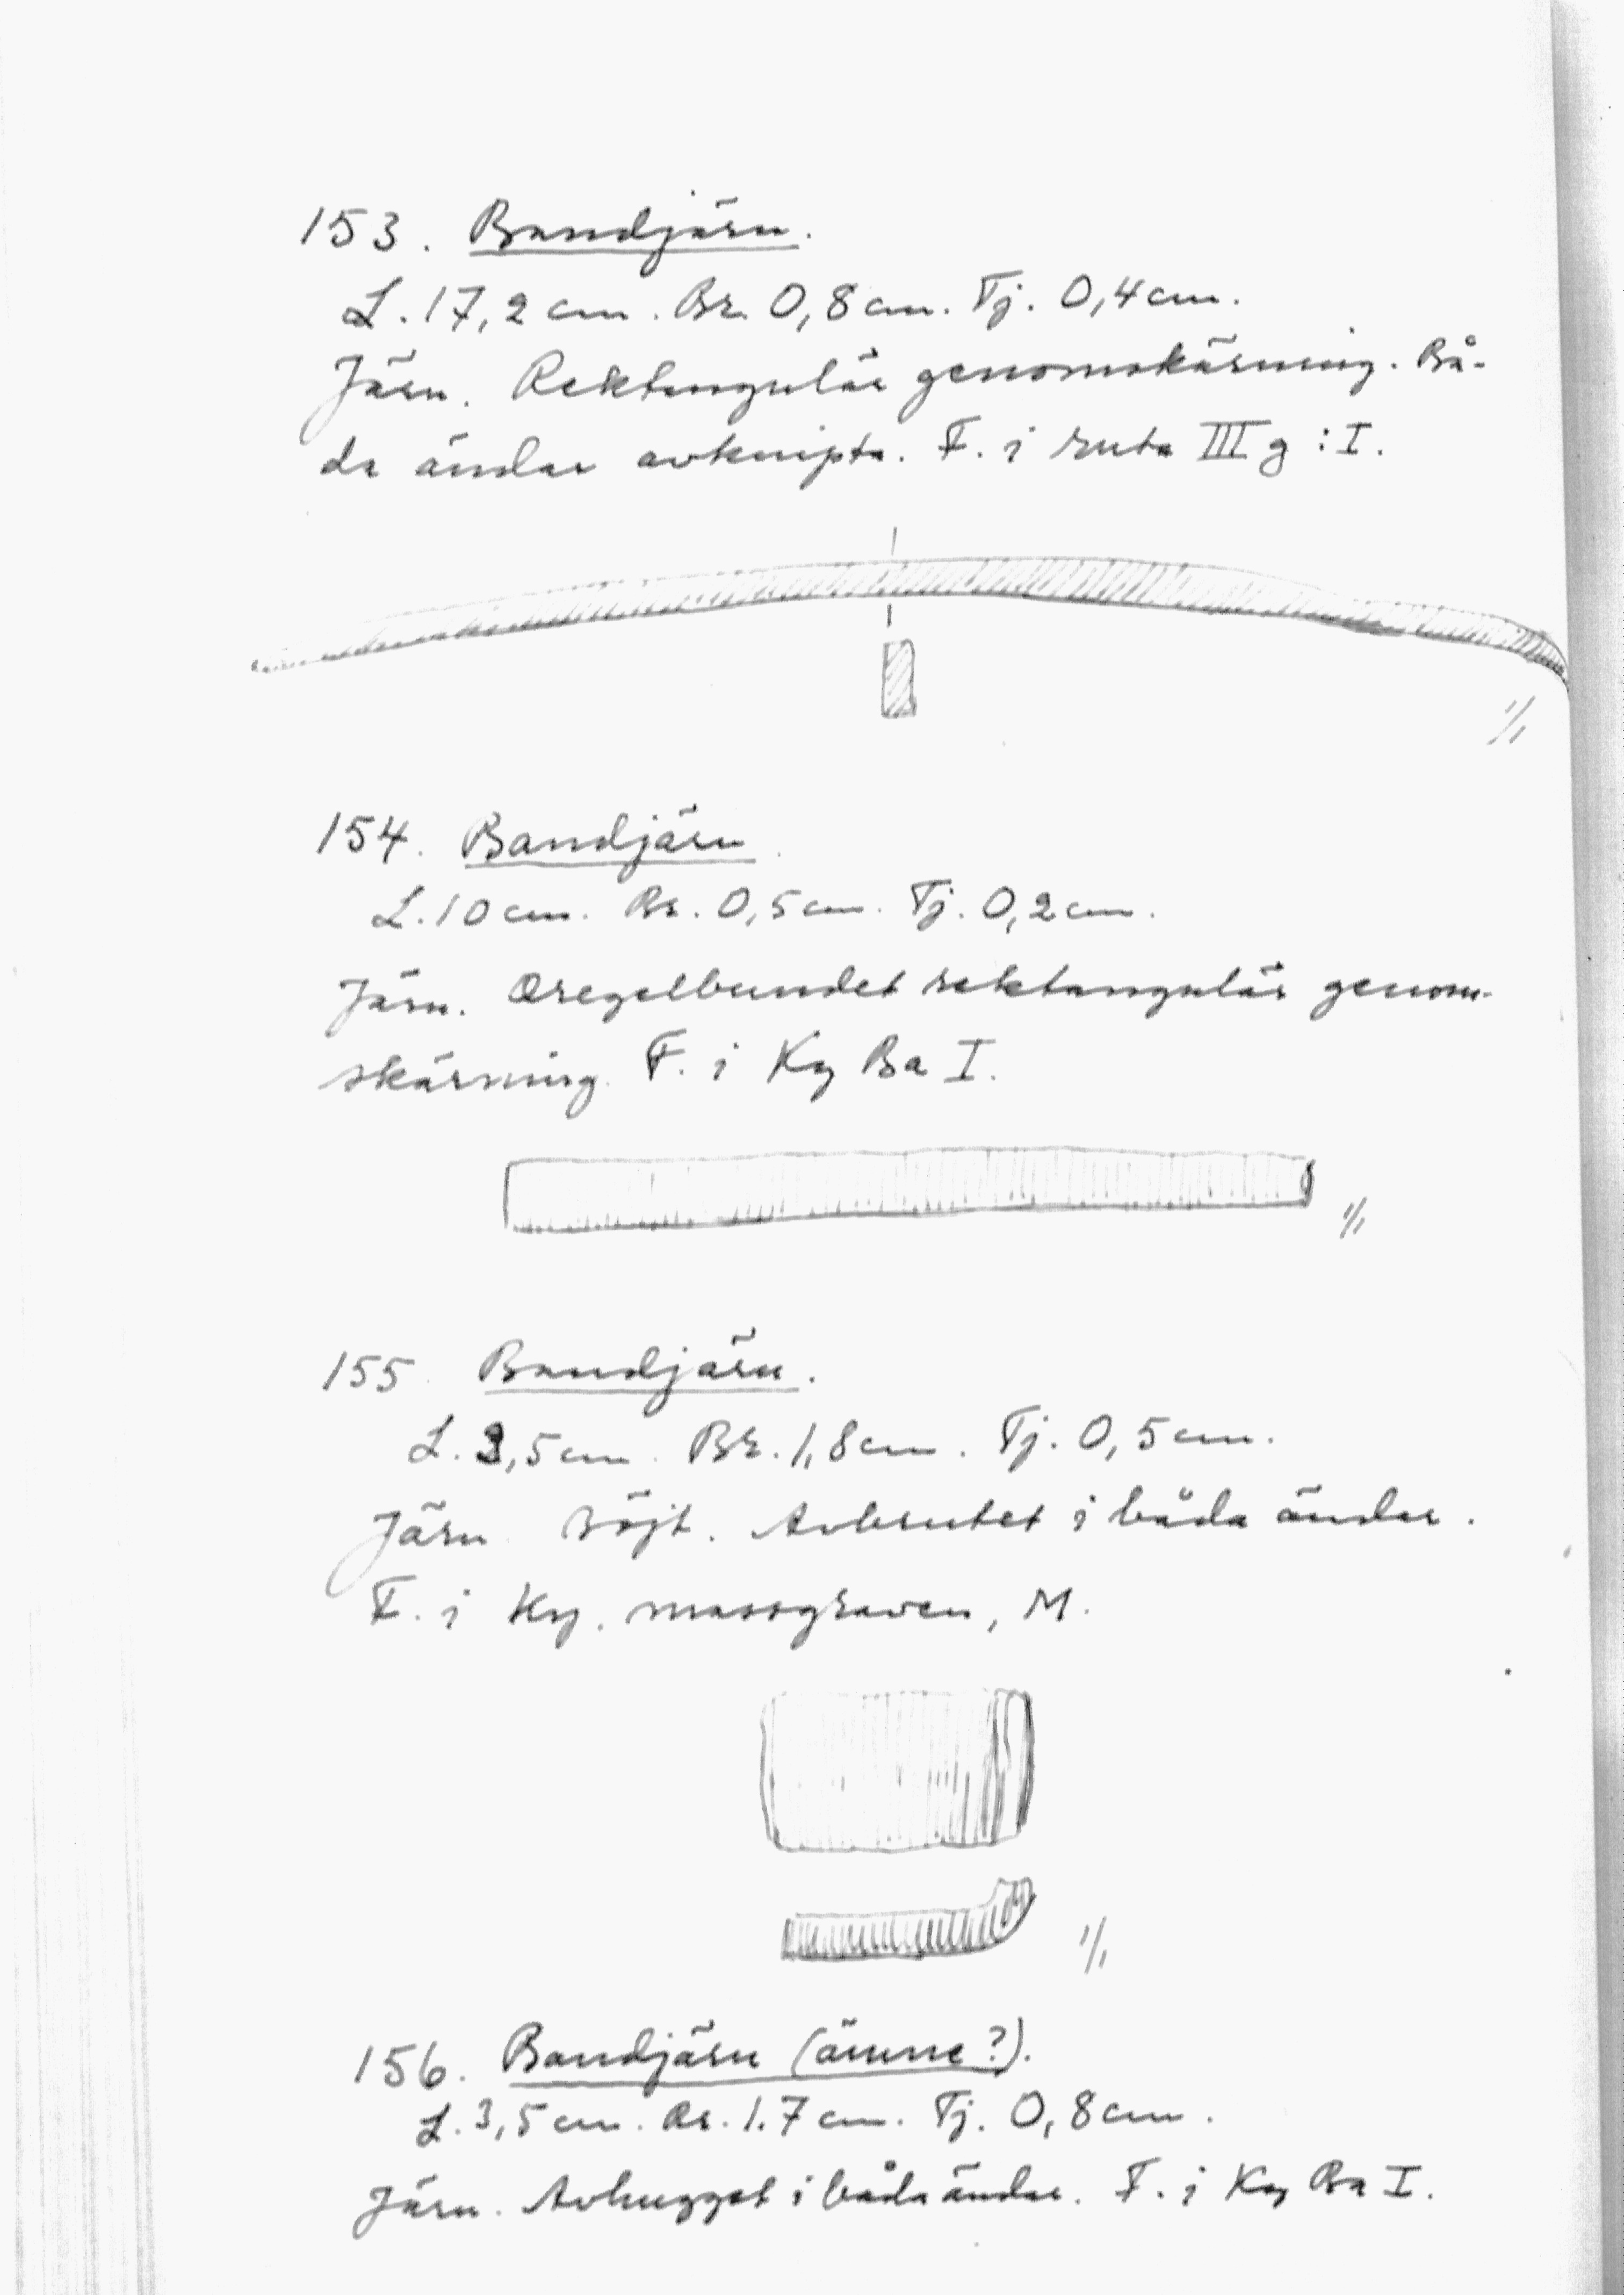 153. Bandjärn.
L. 17,2 cm. Br. 0,8 cm. Tj. 0,4 cm.
Järn. Rektangulär genomskärning. Bå-
da ändar avknipta. F. i ruta III g : I.
1/1
154. Bandjärn.
L. 10 cm. Br. 0,5 cm. Tj. 0,2 cm.
Järn. Oregelbundet rektangulär genom-
skärning. F. i Ky Ba I.
1/1
155. Bandjärn.
L. 3,5 cm. Br. 1,8 cm. Tj. 0,5 cm.
Järn. Böjt. Avbrutet i båda ändar.
F. i Ky. massgraven, M.
1/1
156. Bandjärn (ämne?).
L. 3,5 cm. Br. 1.7 cm. Tj. 0,8 cm.
Järn. Avhugget i båda ändar. F. i Ky Ba I.